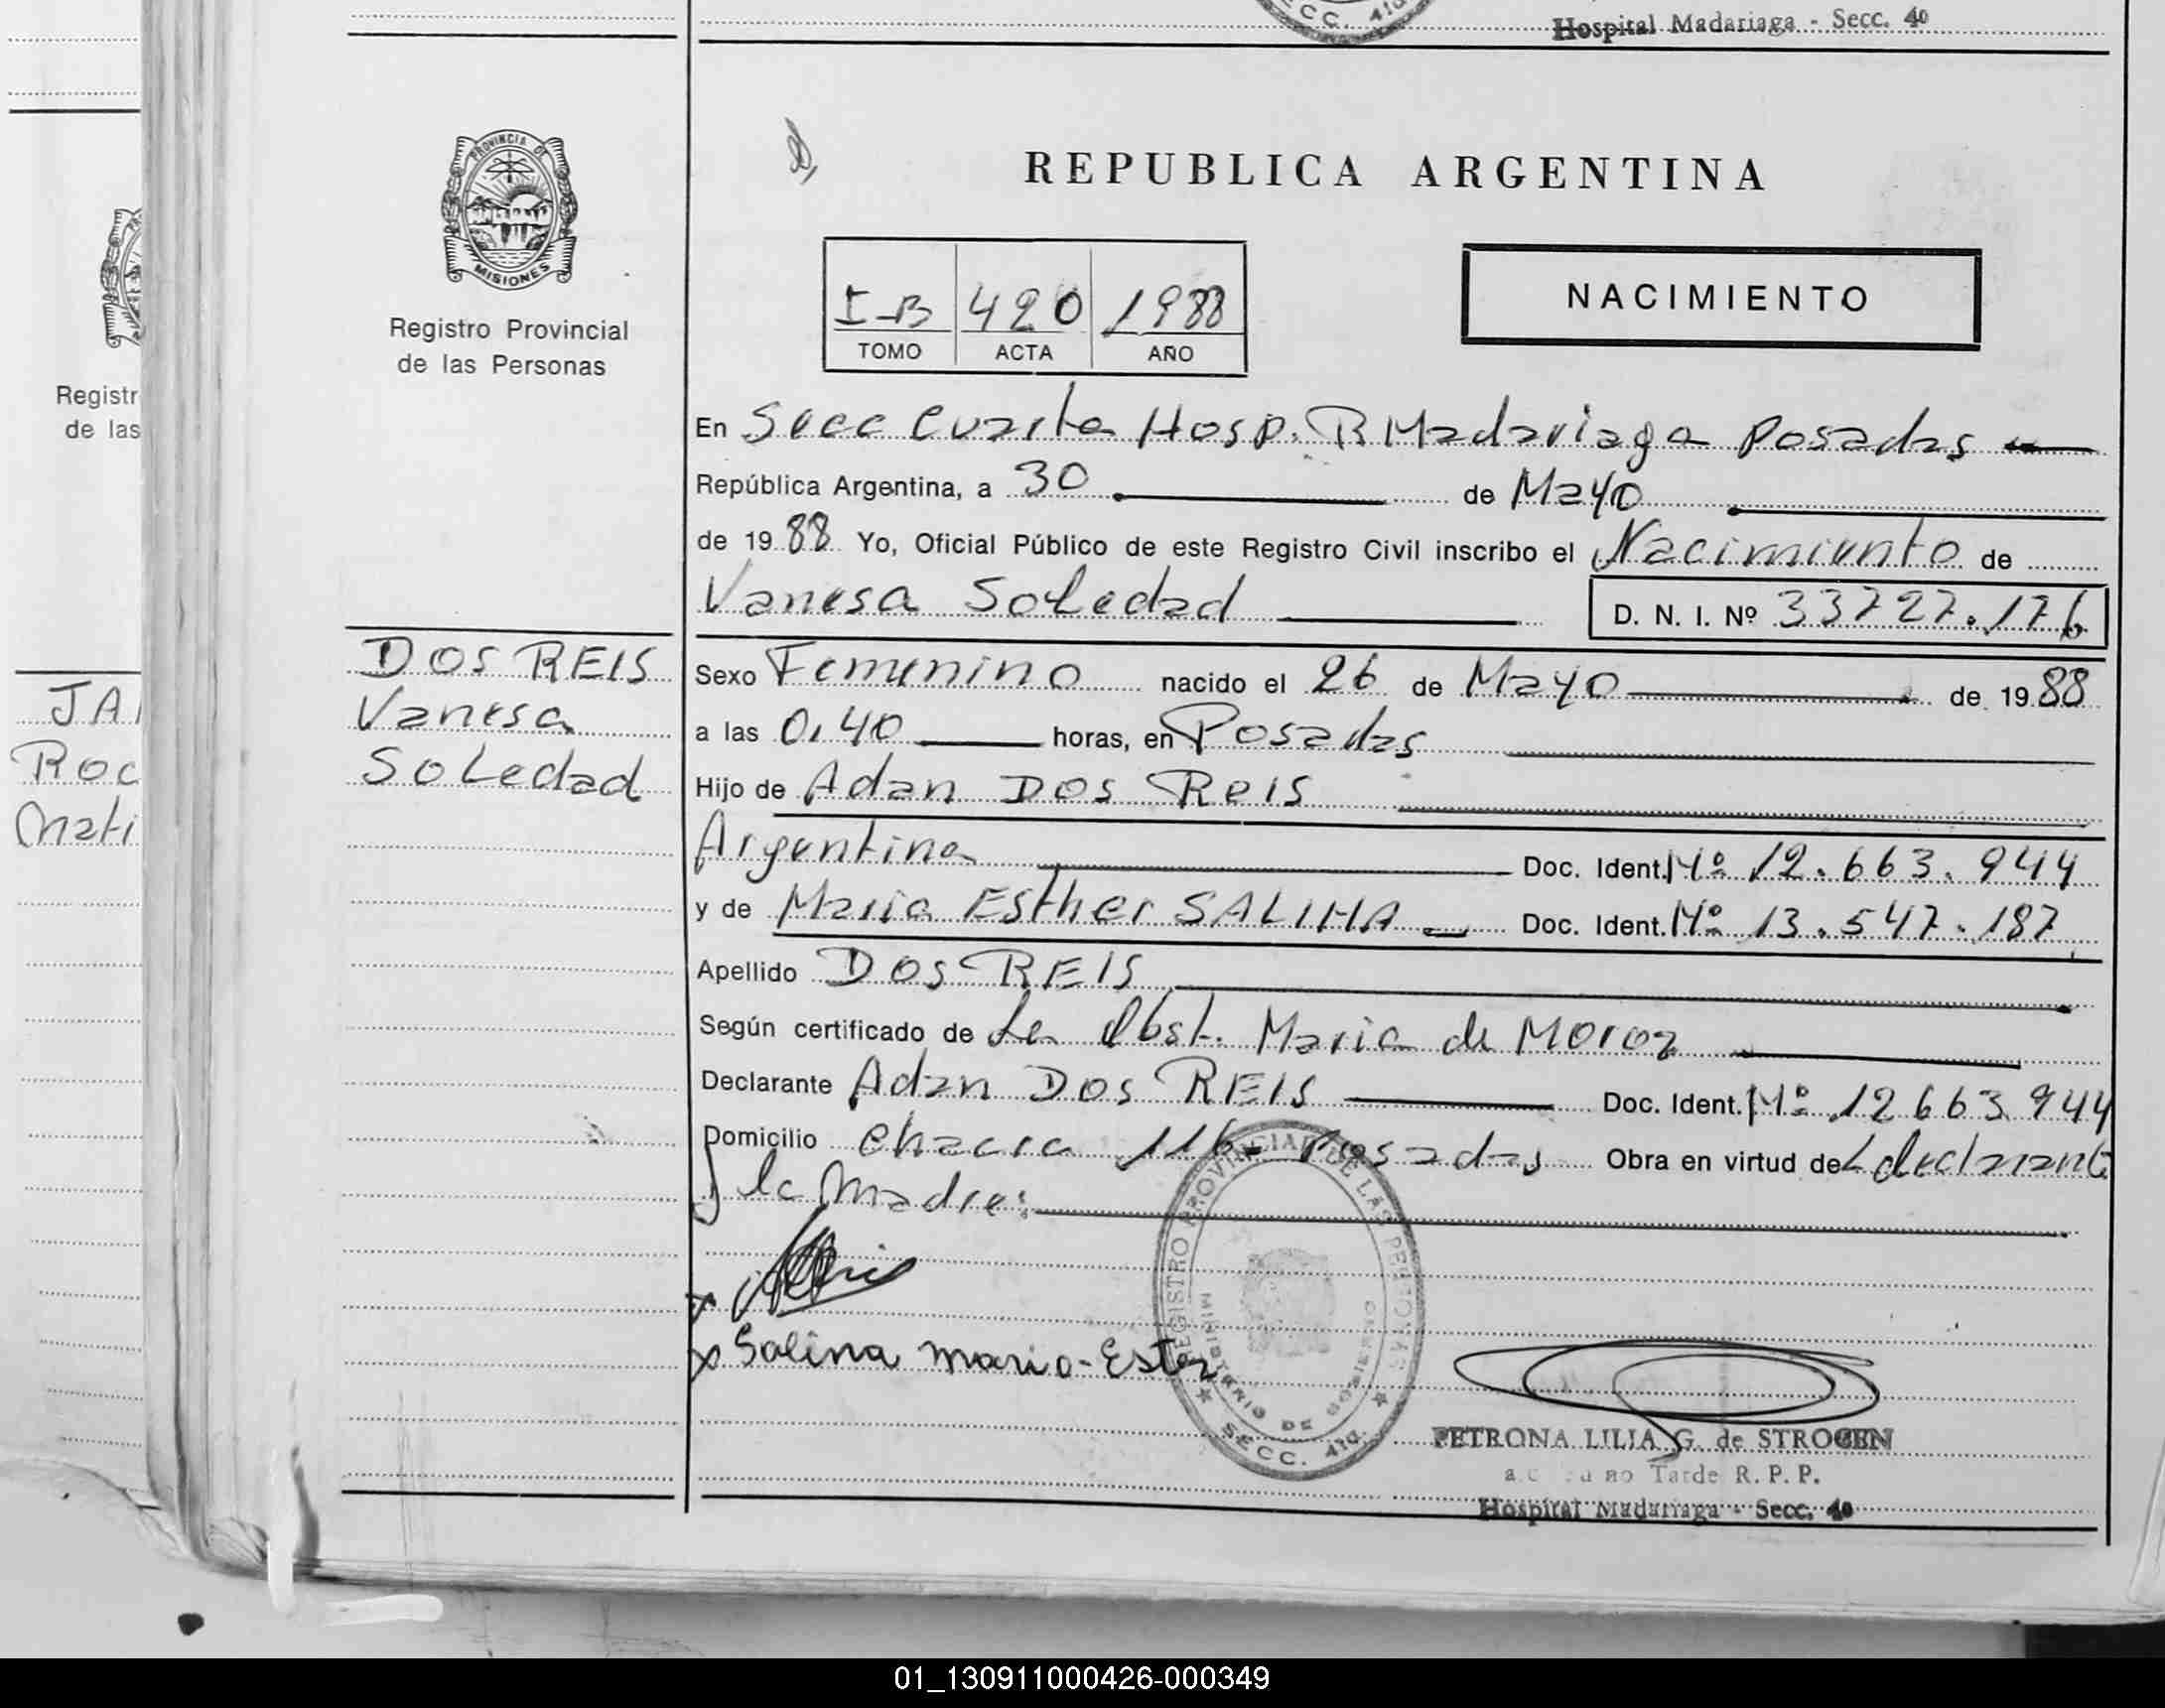 SECC. 4ta
Hospital Madariaga - Secc. 4a
PROVINCIA DE
MISIONES
Registro Provincial
de las Personas
REPUBLICA ARGENTINA
I-B 420 1988
TOMO ACTA AÑO
NACIMIENTO
Registr
de las
JA
Roc
Mati
DOS REIS
Vanesa
Soledad
En Secc Cuarta Hosp. R Madariaga Posadas
República Argentina, a 30 de Mayo
de 1988 Yo, Oficial Público de este Registro Civil inscribo el Nacimiento de
Vanesa Soledad D. N. I. Nº 33727.176
Sexo Femenino nacido el 26 de Mayo de 1988
a las 0,40 horas, en Posadas
Hijo de Adan Dos Reis
Argentina Doc. Ident. Nº 12.663.944
y de Maria Esther SALINA Doc. Ident. Nº 13.547.187
Apellido DOS REIS
Según certificado de La Obst. Maria de Moroz
Declarante Adan Dos REIS Doc. Ident. Nº 12663944
Domicilio Chacra 116 - Posadas Obra en virtud del declarante
y la Madre:
x
x Salina Maria-Ester
REGISTRO PROVINCIAL DE LAS PERSONAS
MINISTERIO DE GOBIERNO
SECC. 4ta.
PETRONA LILIA G. de STROGEN
Tarde R. P. P.
Hospital Madariaga - Secc. 4a
01_130911000426-000349